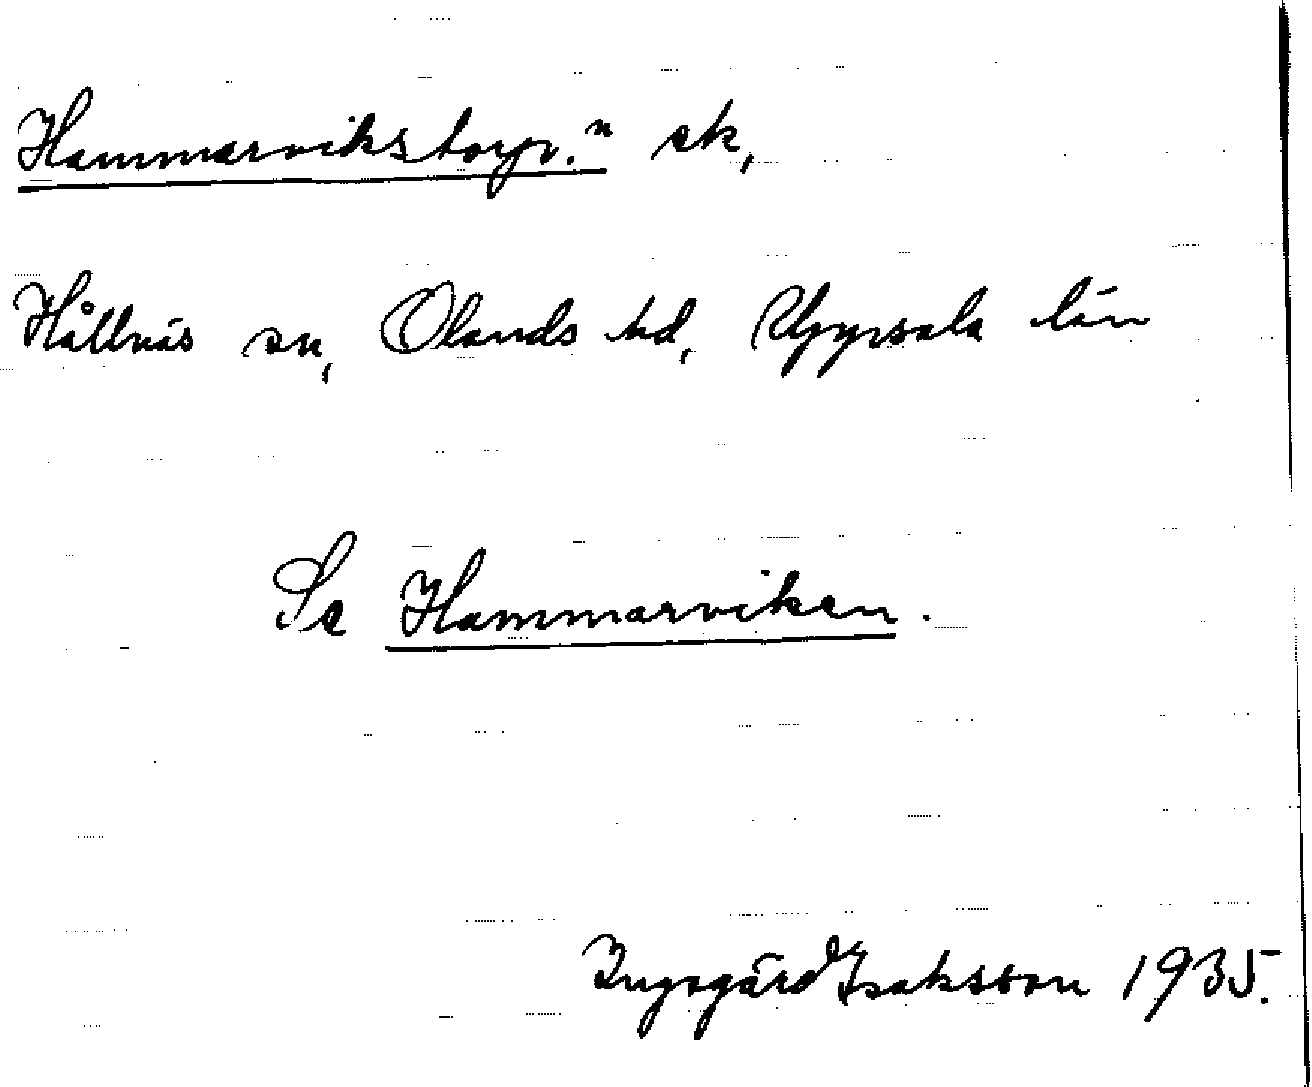 Hammarvikstorp.n sk,
Hållnäs sn, Olands hd, Uppsala län
Se Hammarviken.
Ingegärd Isaksson 1935.